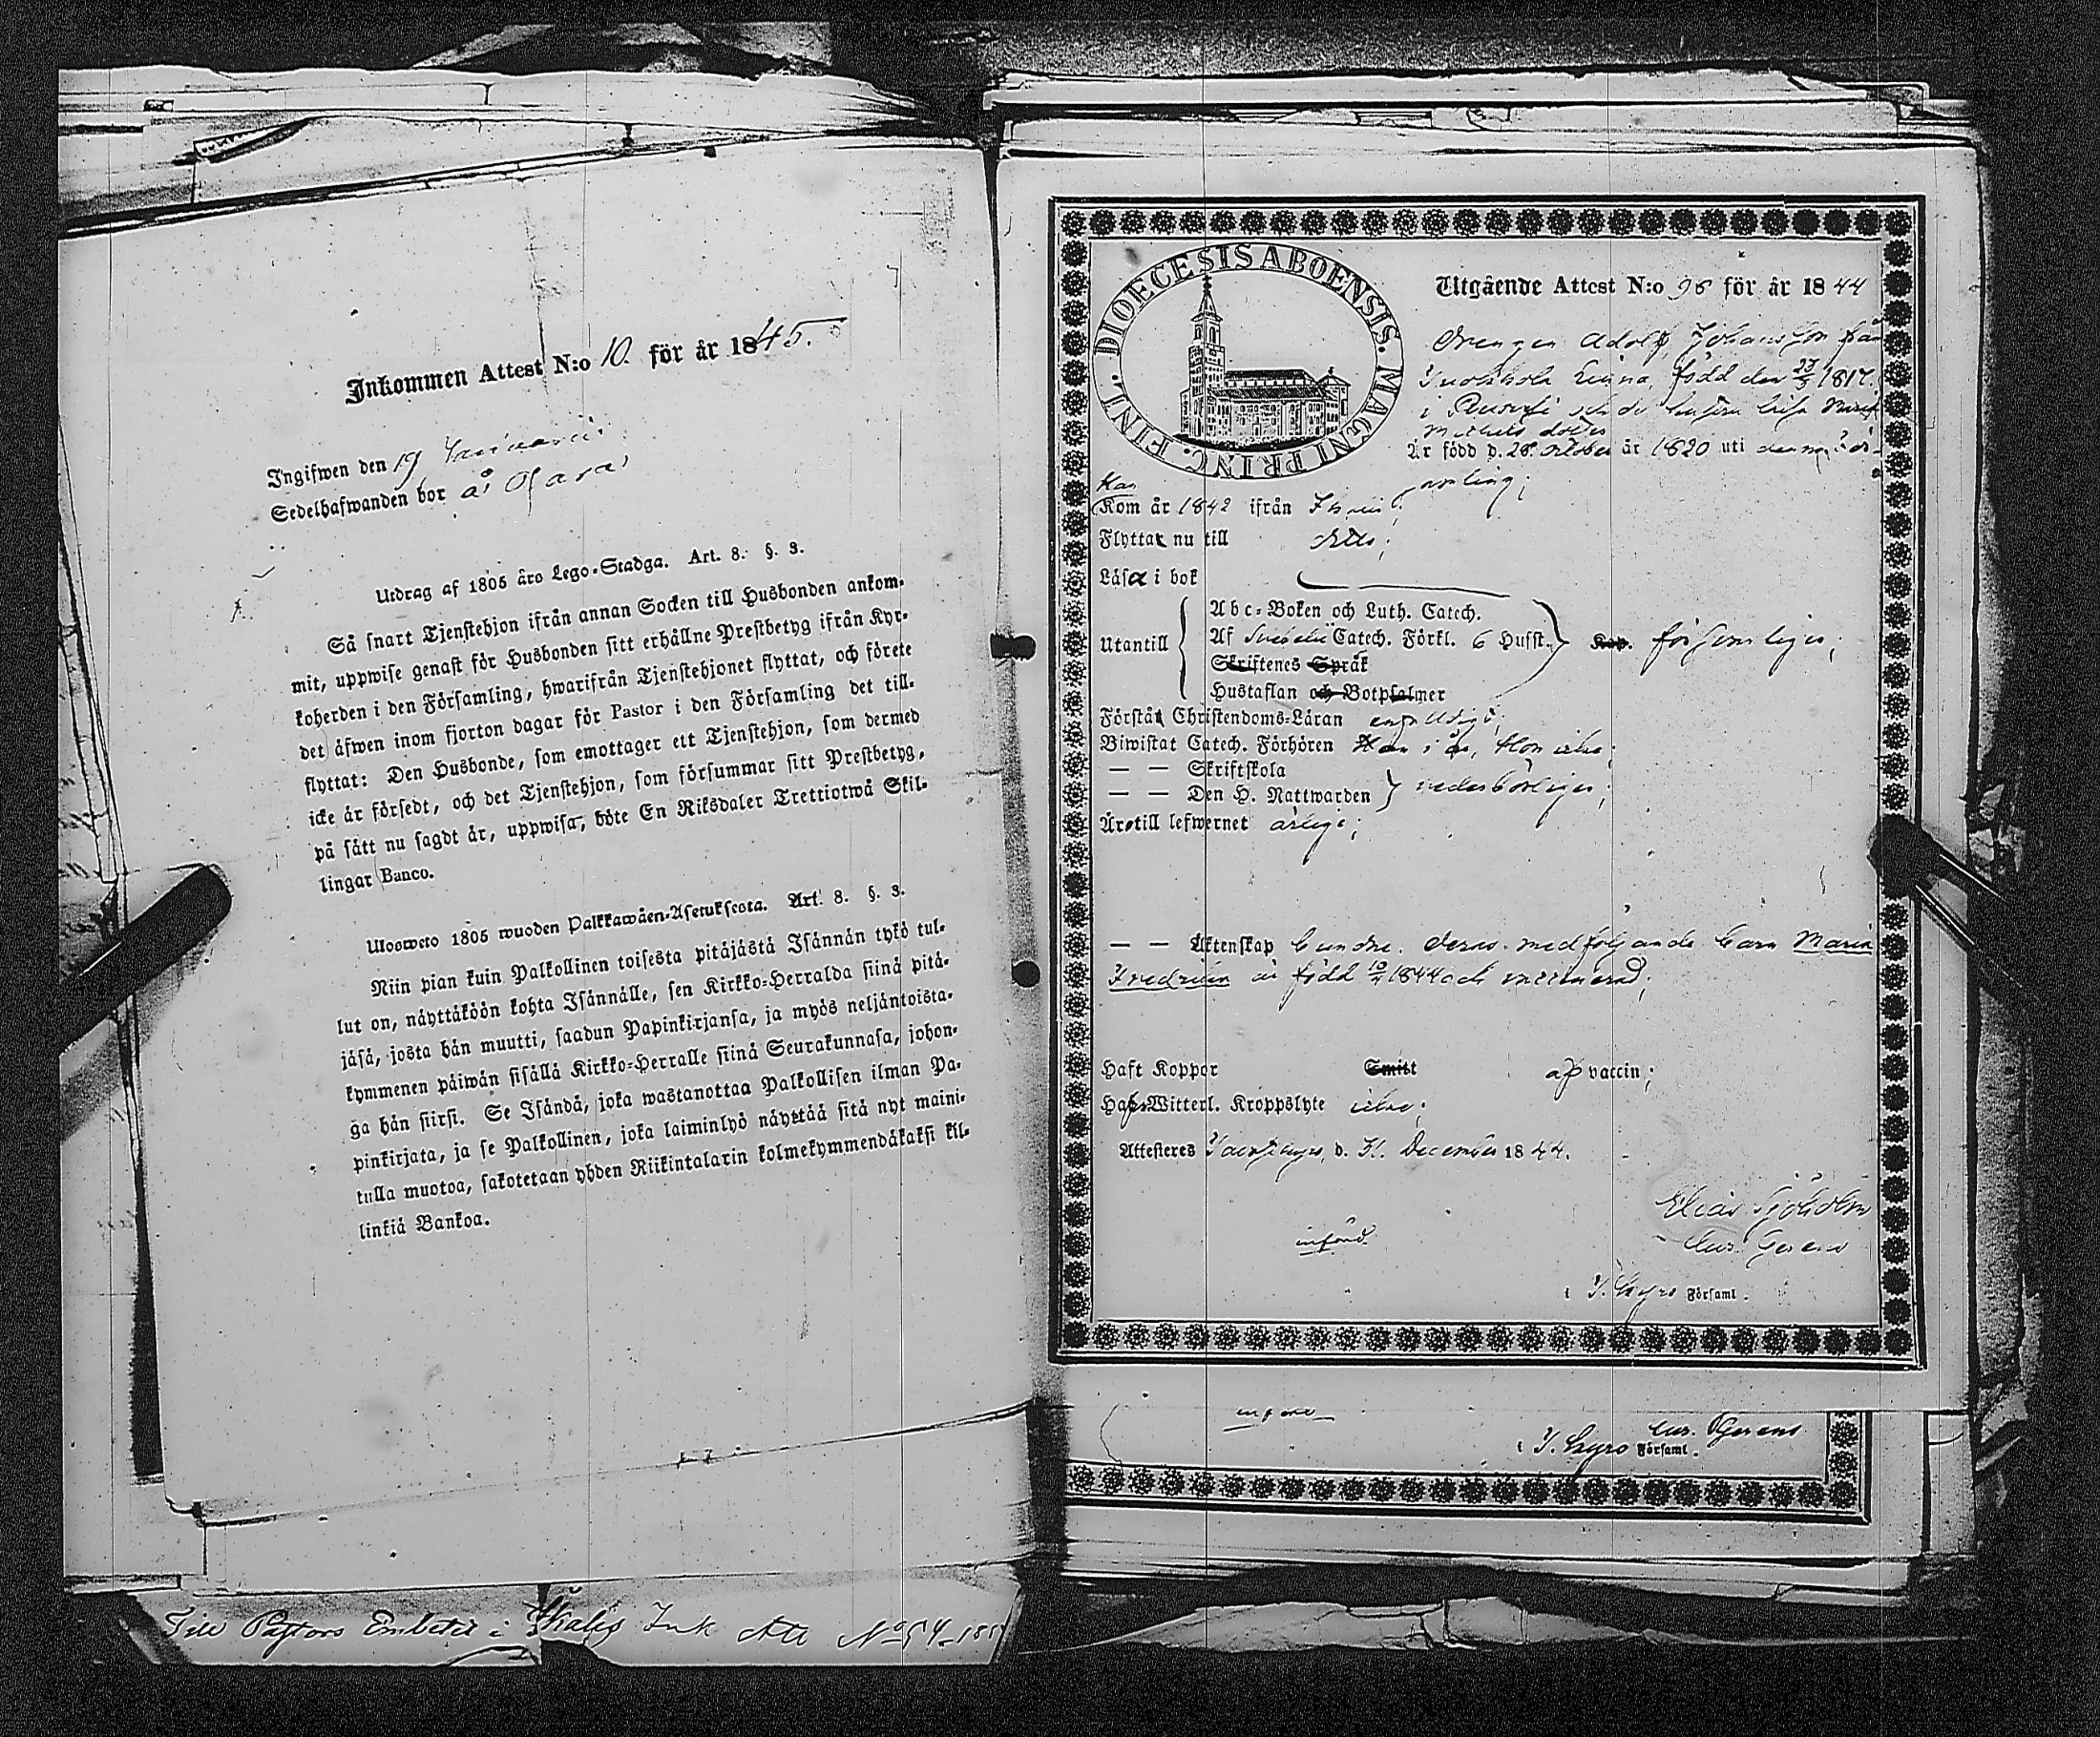 Inkommen Attest N:o 10. för år 1845.
Ingifwen den 19 Januarii
Sedelhafwanden bor å Ojara
Utdrag af 1805 års Lego-Stadga. Art. 8. §. 3.
Så snart Tjenstehjon ifrån annan Socken till Husbonden ankom-
mit, uppwise genast för Husbonden sitt erhållne Prestbetyg ifrån Kyr-
koherden i den Församling, hwarifrån Tjenstehjonet flyttat, och förete
det äfwen inom fjorton dagar för Pastor i den Församling det till-
flyttat: Den Husbonde, som emottager ett Tjenstehjon, som dermed
icke är försedt, och det Tjenstehjon, som försummar sitt Prestbetyg,
på sätt nu sagdt är, uppwisa, böte En Riksdaler Trettiotwå Skil-
lingar Banco.
Ulosweto 1805 wuoden Palkkawäen-Asetuksesta. Art. 8. §. 3.
Niin pian kuin Palkollinen toisesta pitäjästä Isännän tykö tul-
lut on, näyttäköön kohta Isännälle, sen Kirkko-Herralda siinä pitä-
jäsä, josta hän muutti, saadun Papinkirjansa, ja myös neljäntoista-
kymmenen päiwän sisällä Kirkko-Herralle siinä Seurakunnasa, johon-
ga hän siirsi. Se Isändä, joka wastanottaa Palkollisen ilman Pa-
pinkirjata, ja se Palkollinen, joka laiminlyö näyttää sitä nyt maini-
tulla muotoa, sakotetaan yhden Riikintalarin kolmekymmendäkaksi kil-
linkiä Bankoa.
Till Pastors Embetet i Ikalis Ink Att No 54-185
DIOECESIS ABOENSIS. MAGNI PRINC. FINL.
Utgående Attest N:o 96 för år 1844
Drengen Adolf Johansson från
Linna, född den 23/3 1817.
i och des hustru Lisa Maria
Mickelsdotter
Är född d. 28 October år 1820 uti denna för-
samling;
Han
Kom år 1842 ifrån
Flyttar nu till ditto;
Läsa i bok
Abc-Boken och Luth. Catech.
Utantill Af Svebelii Catech. Förkl. 6 Husst. Kap. försvarligen;
Skriftenes Språk
Hustaflan och Botpsalmer
Förstår Christendoms-Läran enfaldigt;
Biwistat Catech. Förhören Han i år, Hon icke;
— — Skriftskola
— — Den H. Nattwarden vederbörligen;
Äro till lefwernet ärliga;
— — Äktenskap bundne. Deras medföljande barn Maria
Fredrika är född 10/4 1844 och vaccinerad;
Haft Koppor Smitt af vaccin;
Hafwa Witterl. Kroppslyte icke;
Attesteres d. 31. December 1844.
Elias Sjöholm
Cur. Gerens
införd
i T. Kyro Församl.
införd
Cur. Gerens
i T. Kyro Församl.